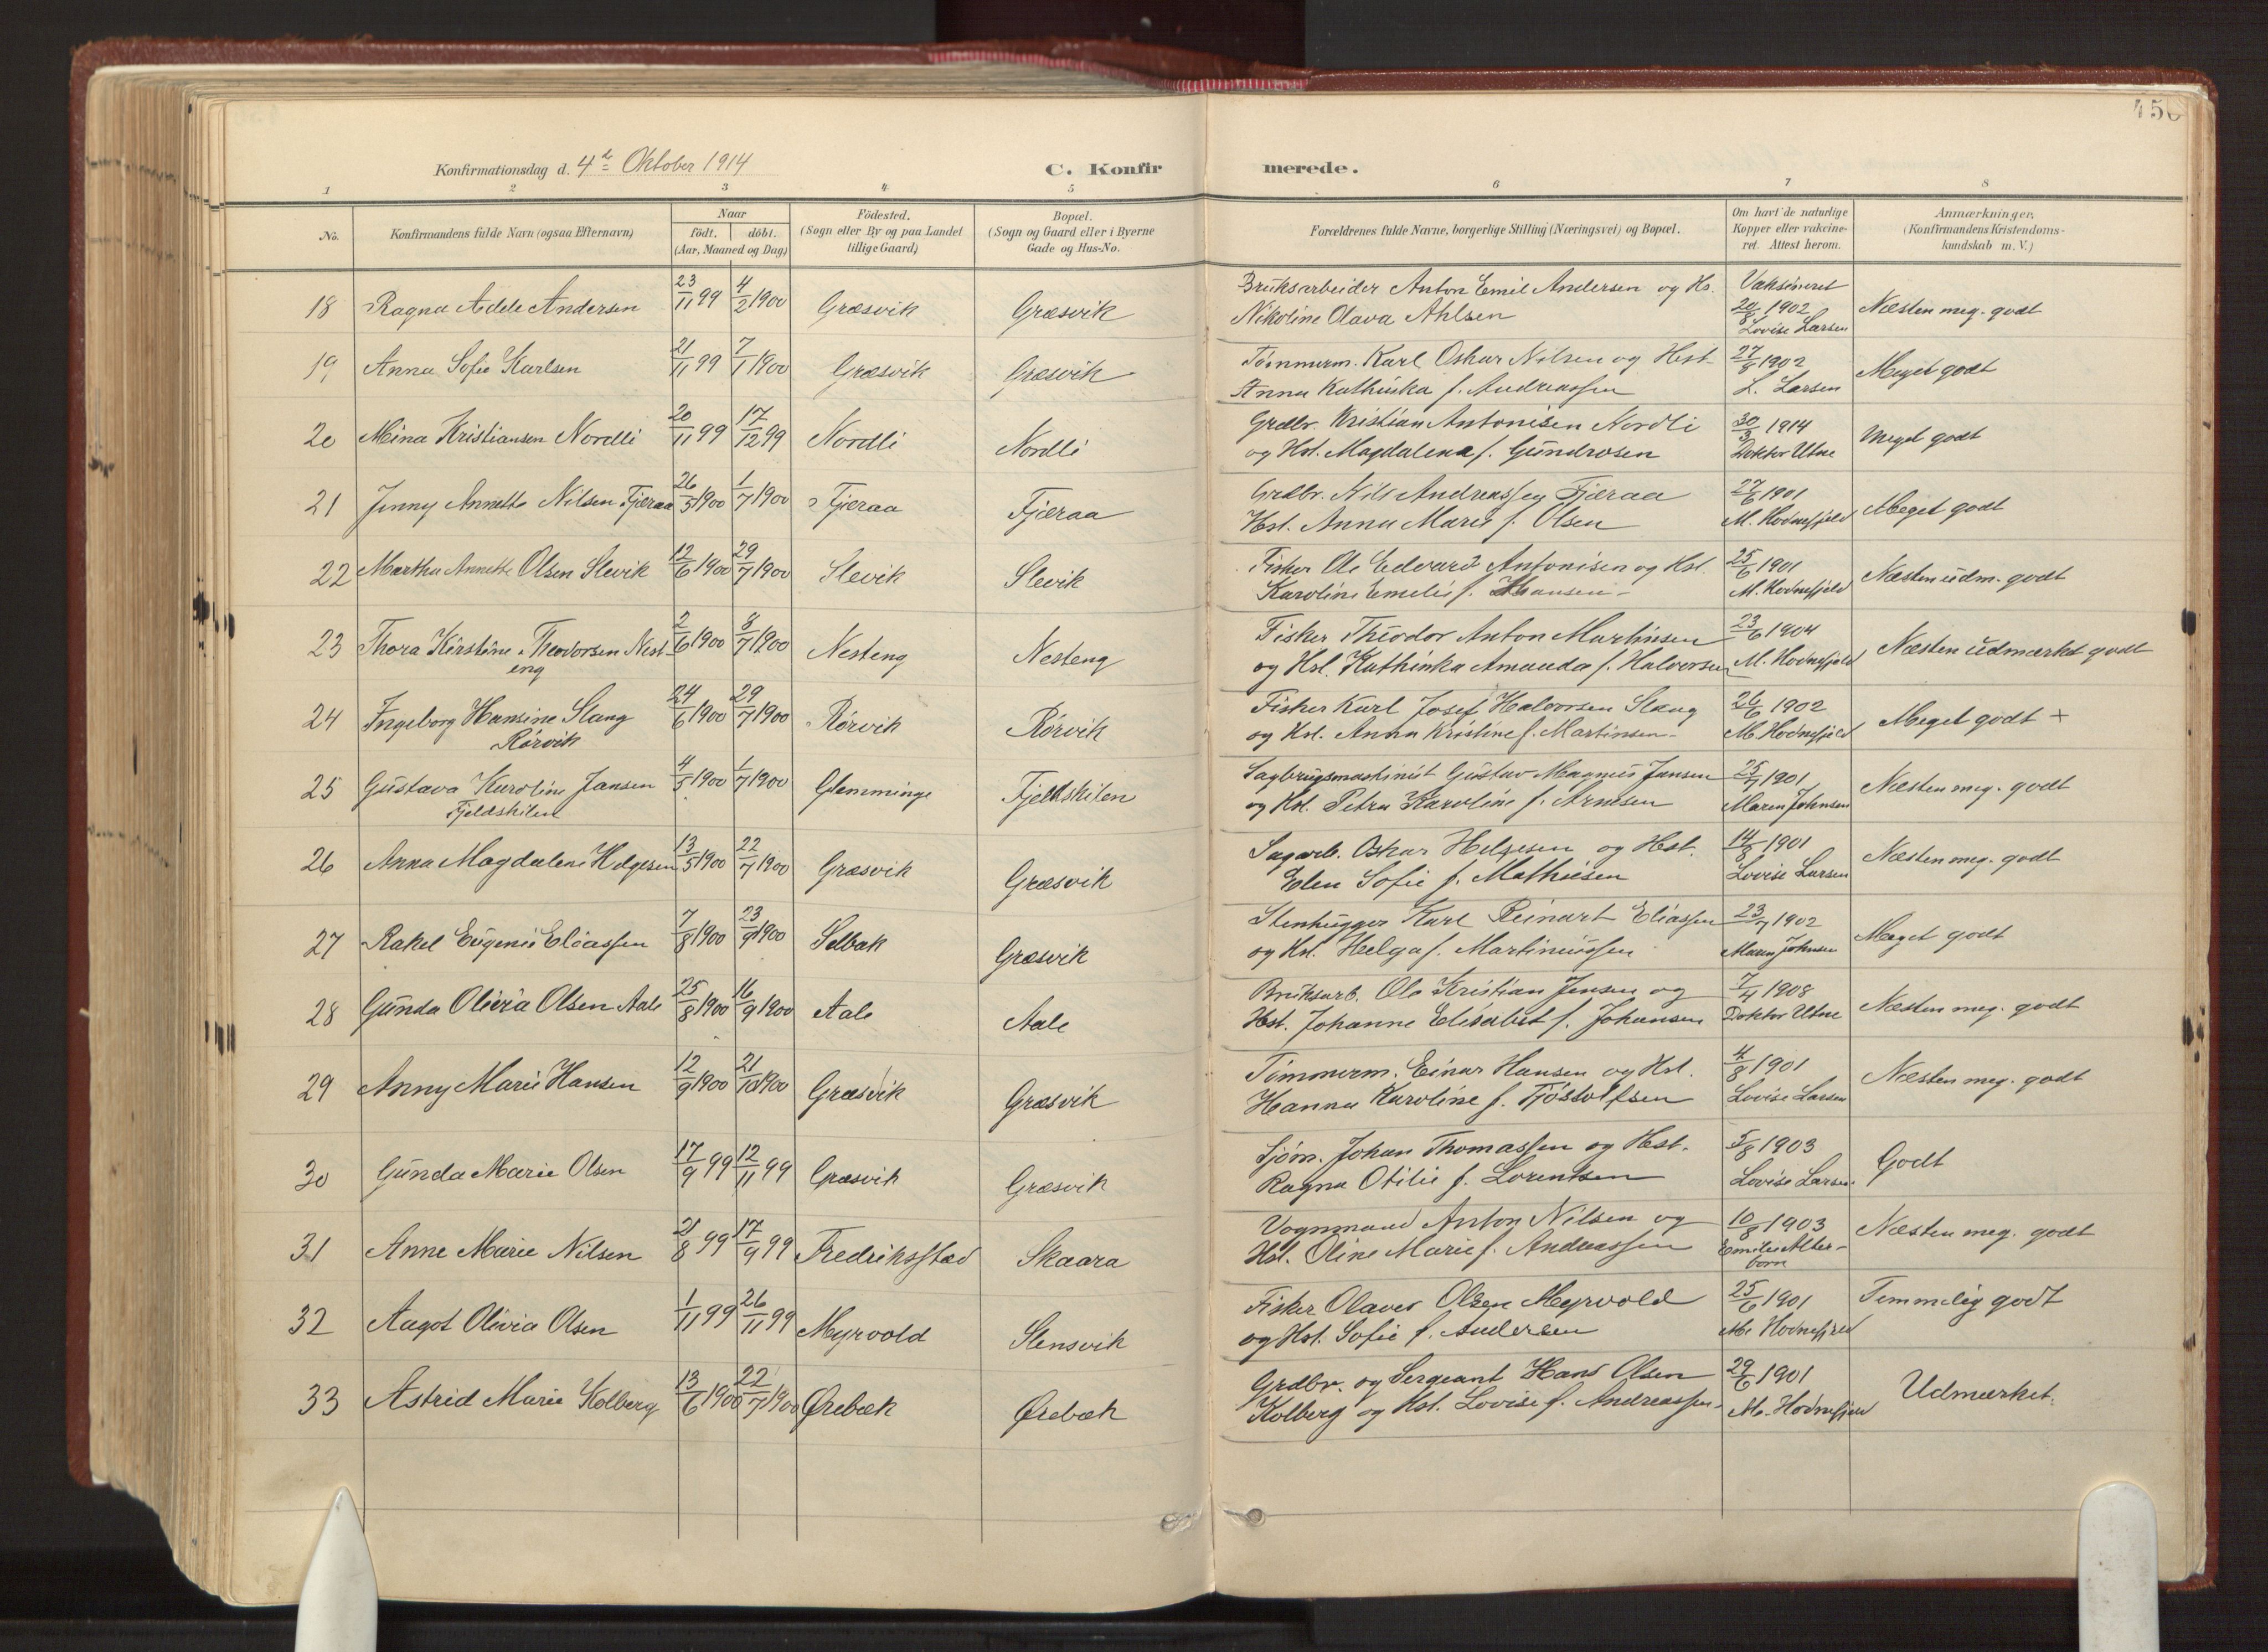 450
Konfirmationsdag d. 4de Oktober 1914
C. Konfir merede.
1 2 3 4 5 6 7 8
No.
Konfirmandens fulde Navn (ogsaa Efternavn)
Naar
födt. döbt.
(Aar, Maaned og Dag)
Födested.
(Sogn eller By og paa Landet
tillige Gaard)
Bopæl.
(Sogn og Gaard eller i Byerne
Gade og Hus-No.
Forældrenes fulde Navne, borgerlige Stilling (Næringsvei) og Bopæl.
Om havt de naturlige
Kopper eller vakcine-
ret. Attest herom.
Anmærkninger.
(Konfirmandens Kristendoms-
kundskab m. V.)
18 Ragna Adele Andersen 23/11 99 4/2 1900 Græsvik Græsvik
Bruksarbeider Anton Emil Andersen og Hs. Vaksineret
Nikoline Olava Ahlsen 20/8 1902 Næsten meg. godt
Lovise Larsen
19 Anna Sofie Karlsen 21/11 99 7/1 1900 Græsvik Græsvik
Tømmerm. Karl Oskar Nilsen og Hst. 27/8 1902
Anna Kathinka f. Andreassen L. Larsen Meget godt
20 Mina Kristiansen Nordli 20/11 99 17/12 99 Nordli Nordli
Grdbr. Kristian Antonisen Nordli 30/3 1914
og Hst. Magdalena f. Gundrosen Doktor Utne Meget godt
21 Jenny Annette Nilsen Fjæraa 26/5 1900 1/7 1900 Fjæraa Fjæraa
Grdbr. Nils Andreassen Fjæraa 27/6 1901
Hst. Anna Marie f. Olsen M. Hodnefjeld Meget godt
22 Martha Annette Olsen Slevik 12/6 1900 29/7 1900 Slevik Slevik
Fisker Ole Edvard Antonisen og Hst. 25/6 1901
Karoline Emelie f. Hansen M. Hodnefjeld Næsten udm. godt
23 Thora Kirstine Theodorsen Nest- 2/6 1900 8/7 1900 Nesteng Nesteng
eng
Fisker Theodor Anton Martinsen 23/6 1904
og Hst. Kathinka Amanda f. Halvorsen M. Hodnefjeld Næsten udmærket godt
24 Ingeborg Hansine Slang 24/6 1900 29/7 1900 Rørvik Rørvik
Rørvik
Fisker Karl Josef Halvorsen Slang 26/6 1902
og Hst. Anna Kristine f. Martinsen M. Hodnefjeld Meget godt +
25 Gustava Karoline Jansen 4/5 1900 1/7 1900 Glemminge Fjeldskilen
Fjeldskilen
Sagbrugsmaskinist Gustav Magnus Jansen 25/7 1901
og Hst. Petra Karoline f. Arnesen Maren Johnsen Næsten meg. godt
26 Anna Magdalene Helgesen 13/5 1900 22/7 1900 Græsvik Græsvik
Sagarb. Oskar Helgesen og Hst. 14/8 1901
Elen Sofie f. Mathiesen Lovise Larsen Næsten meg. godt
27 Rakel Eugenie Eliassen 7/8 1900 23/9 1900 Selbak Græsvik
Stenhugger Karl Reinart Eliassen 23/7 1902
og Hst. Helga f. Martiniussen Maren Johnsen Meget godt
28 Gunda Olivia Olsen Aale 25/8 1900 16/9 1900 Aale Aale
Bruksarb. Ole Kristian Jensen og 7/4 1908
Hst. Johanne Elisabet f. Johansen Doktor Utne Næsten meg. godt
29 Anny Marie Hansen 12/9 1900 21/10 1900 Græsvik Græsvik
Tømmerm. Einar Hansen og Hst. 4/8 1901
Hanna Karoline f. Tjøstolfsen Lovise Larsen Næsten meg. godt
30 Gunda Marie Olsen 17/9 99 12/11 99 Græsvik Græsvik
Sjøm. Johan Thomassen og Hst. 5/8 1903
Ragna Otilie f. Lorentsen Lovise Larsen Godt
31 Anne Marie Nilsen 21/8 99 17/9 99 Fredriksstad Skaara
Vognmand Anton Nilsen og 10/8 1903
Hst. Oline Marie f. Andreassen Emilie Alter- Næsten meg. godt
born
32 Aagot Olivia Olsen 1/11 99 26/11 99 Myrvold Slensvik
Fisker Olaves Olsen Myrvold 25/6 1901
og Hst. Sofie f. Andersen M. Hodnefjeld Temmelig godt
33 Astrid Marie Kolberg 13/6 1900 22/7 1900 Ørebæk Ørebæk
Grdbr. og Sergeant Hans Olsen 29/6 1901
Kolberg og Hst. Lovise f. Andreassen M. Hodnefjeld Udmærket.